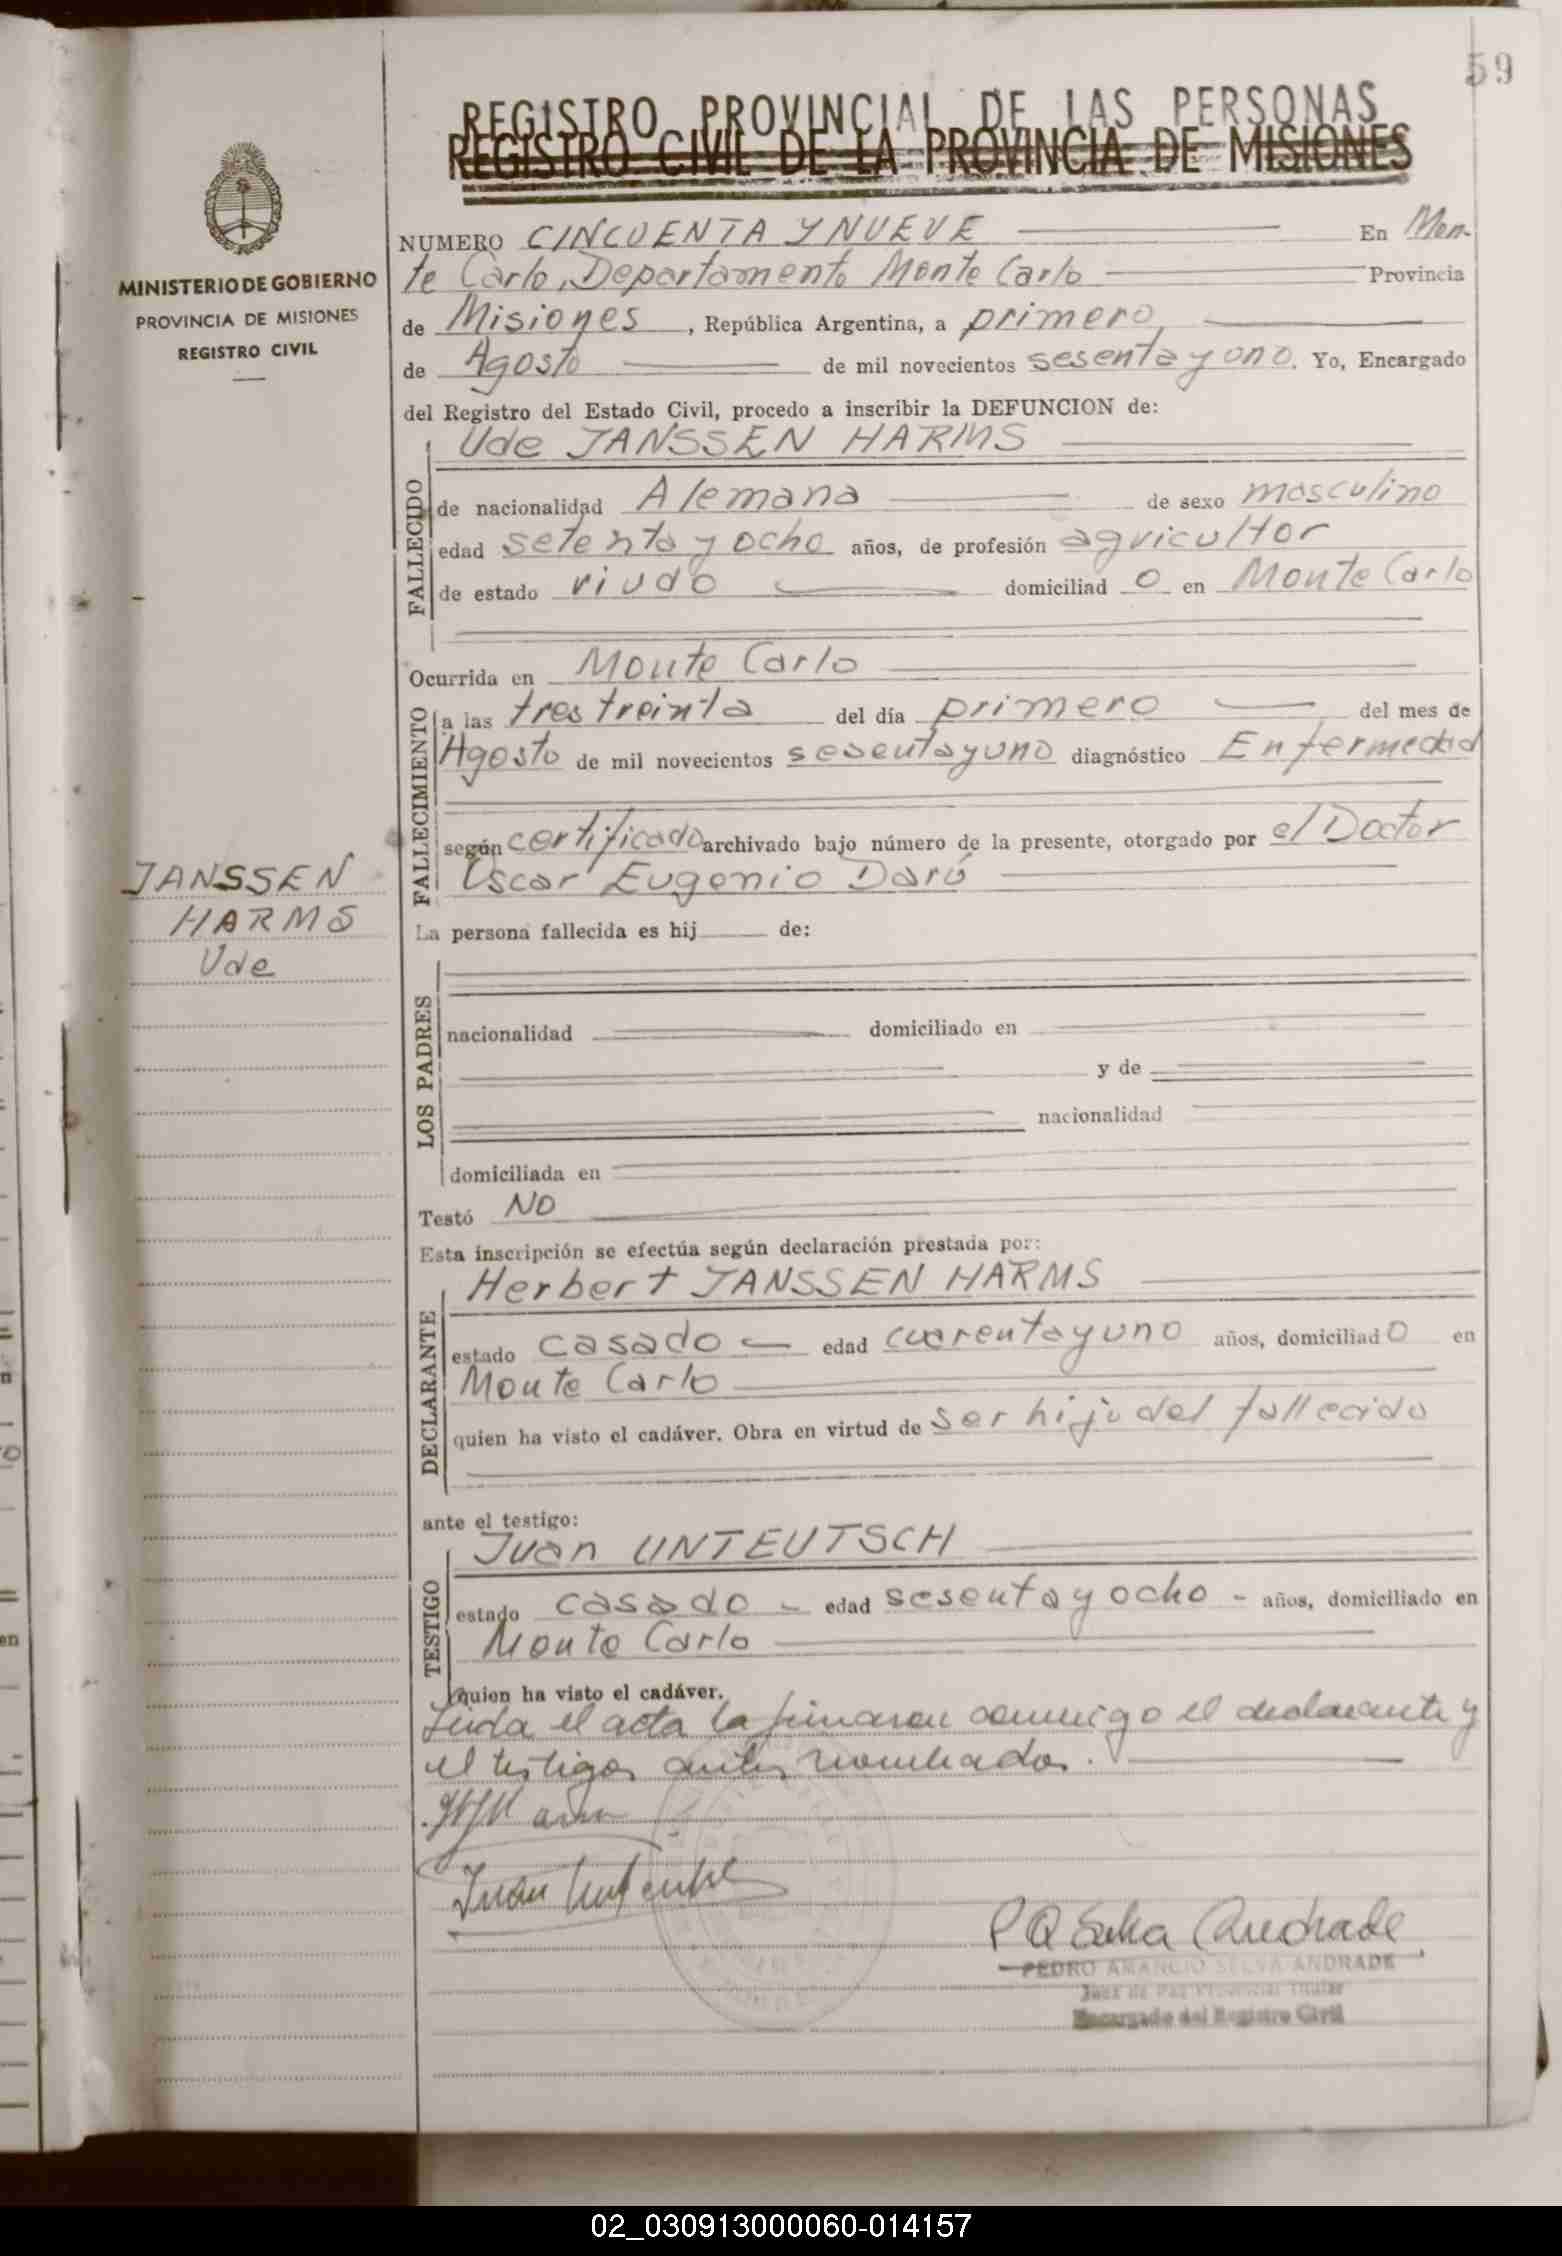 59
REGISTRO PROVINCIAL DE LAS PERSONAS
REGISTRO CIVIL DE LA PROVINCIA DE MISIONES
MINISTERIO DE GOBIERNO
PROVINCIA DE MISIONES
REGISTRO CIVIL
NUMERO CINCUENTA Y NUEVE En Mon-
te Carlo, Departamento Monte Carlo Provincia
de Misiones, República Argentina, a primero
de Agosto de mil novecientos sesenta y uno. Yo, Encargado
del Registro del Estado Civil, procedo a inscribir la DEFUNCION de:
Ude JANSSEN HARMS
FALLECIDO
de nacionalidad Alemana de sexo masculino
edad setenta y ocho años, de profesión agricultor
de estado viudo domiciliad o en Monte Carlo
Ocurrida en Monte Carlo
FALLECIMIENTO
a las tres treinta del día primero del mes de
Agosto de mil novecientos sesenta y uno diagnóstico Enfermedad
según certificado archivado bajo número de la presente, otorgado por el Doctor
Oscar Eugenio Daró
JANSSEN
HARMS
Ude
La persona fallecida es hij de:
LOS PADRES
nacionalidad domiciliado en
y de
nacionalidad
domiciliada en
Testó NO
Esta inscripción se efectúa según declaración prestada por:
Herbert JANSSEN HARMS
DECLARANTE
estado casado edad cuarenta y uno años, domiciliad o en
Monte Carlo
quien ha visto el cadáver. Obra en virtud de ser hijo del fallecido
ante el testigo:
Juan UNTEUTSCH
TESTIGO
estado casado - edad sesenta y ocho - años, domiciliado en
Monte Carlo
quien ha visto el cadáver.
Leida el acta la firmaron conmigo el declarante y
el testigos antes nombrados.
Juan
P A Selva Andrade
PEDRO AMANCIO SELVA ANDRADE
Juez de Paz Provincial Titular
Encargado del Registro Civil
02_030913000060-014157